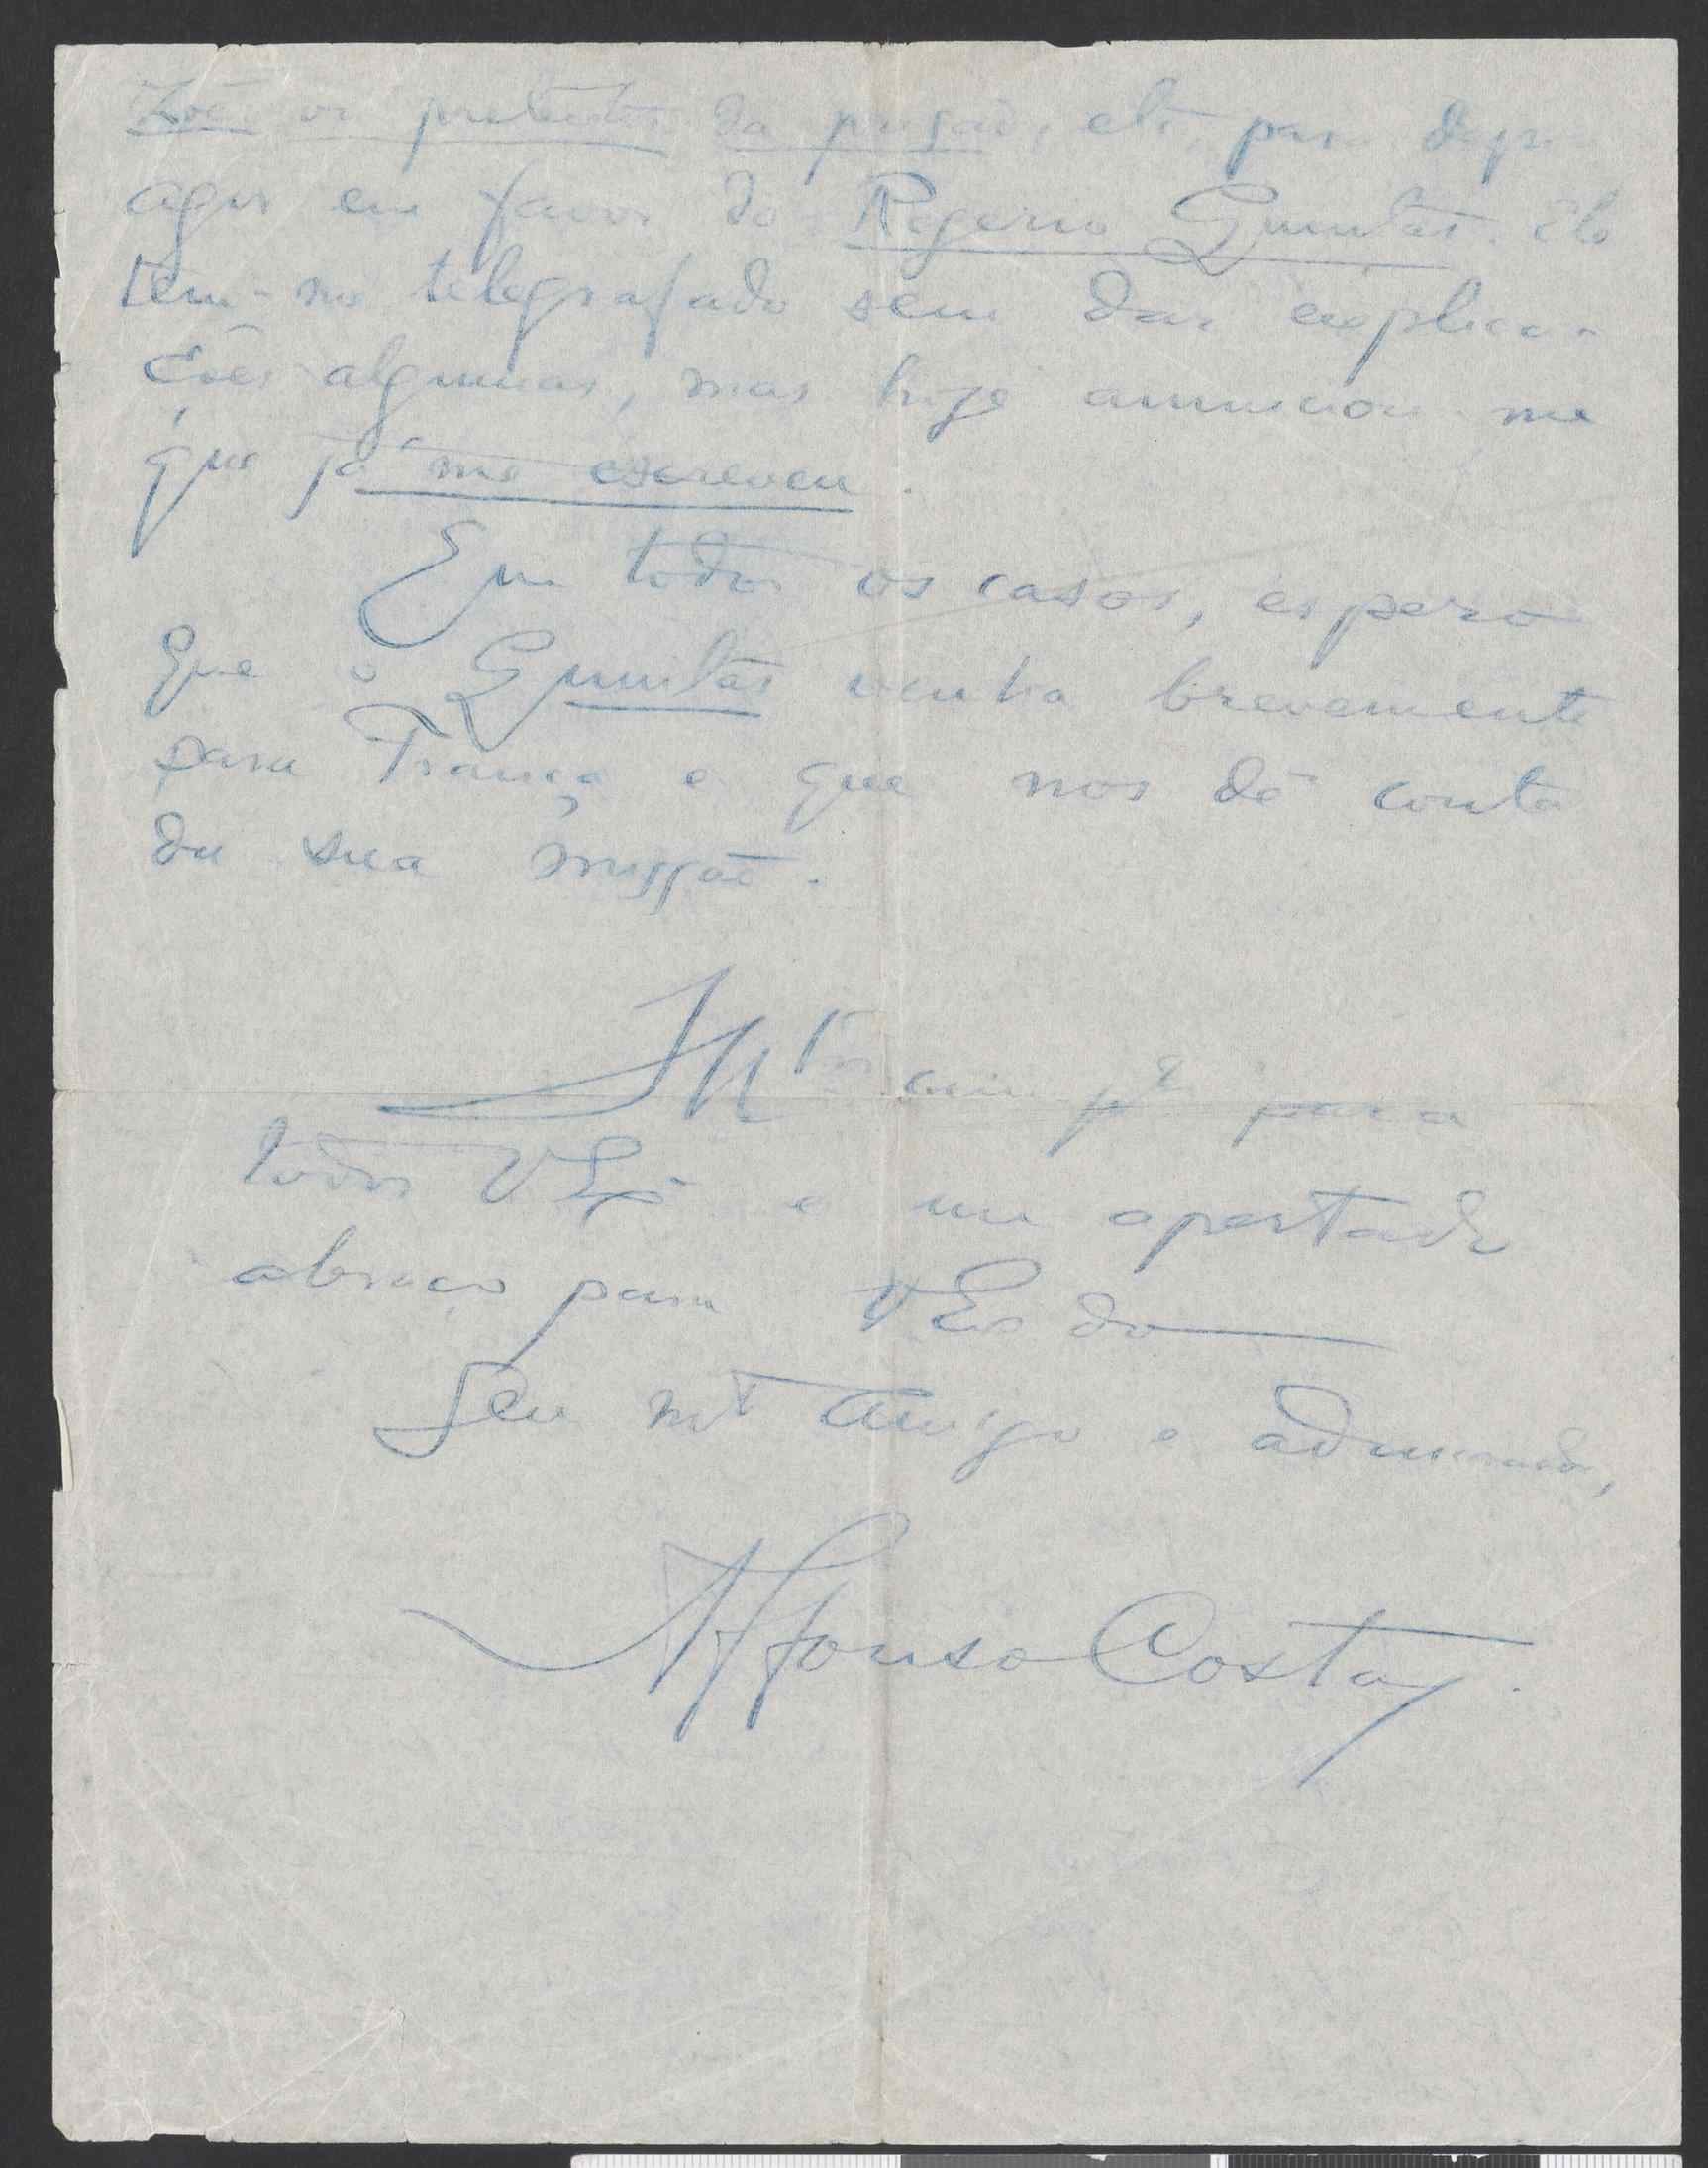 os pretextos da prisão, etc, para depois
agir em favor do Rogerio Quintas. Ele
tem-me telegrafado sem dar explica-
ções algumas, mas hoje annunciou-me
que já me escreveu.
Em todos os casos, espero
que o Quintas venha brevemente
para França e que nos dê conta
da sua missão.
para
todos VEx.as e um apertado
abraço para VEx. do
Seu mt.º amigo e admirador,
Affonso Costa.